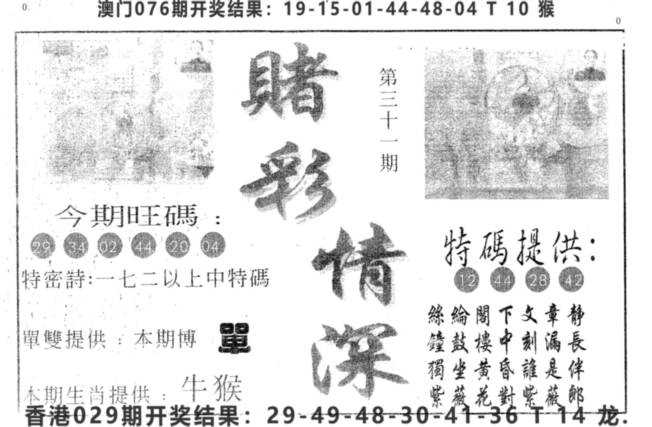 澳门076期开奖结果：19-15-01-44-48-04 T 10 猴
賭彩情深
第三十一期
今期旺碼：
29 34 02 44 20 04
特密詩:一七二以上中特碼
單雙提供：本期博 單
本期生肖提供：牛猴
特碼提供:
12 44 28 42
絲綸閣下文章靜
鐘鼓樓中刻漏長
獨坐黃昏誰是伴
紫薇花對紫薇郎
香港029期开奖结果：29-49-48-30-41-36 T 14 龙.